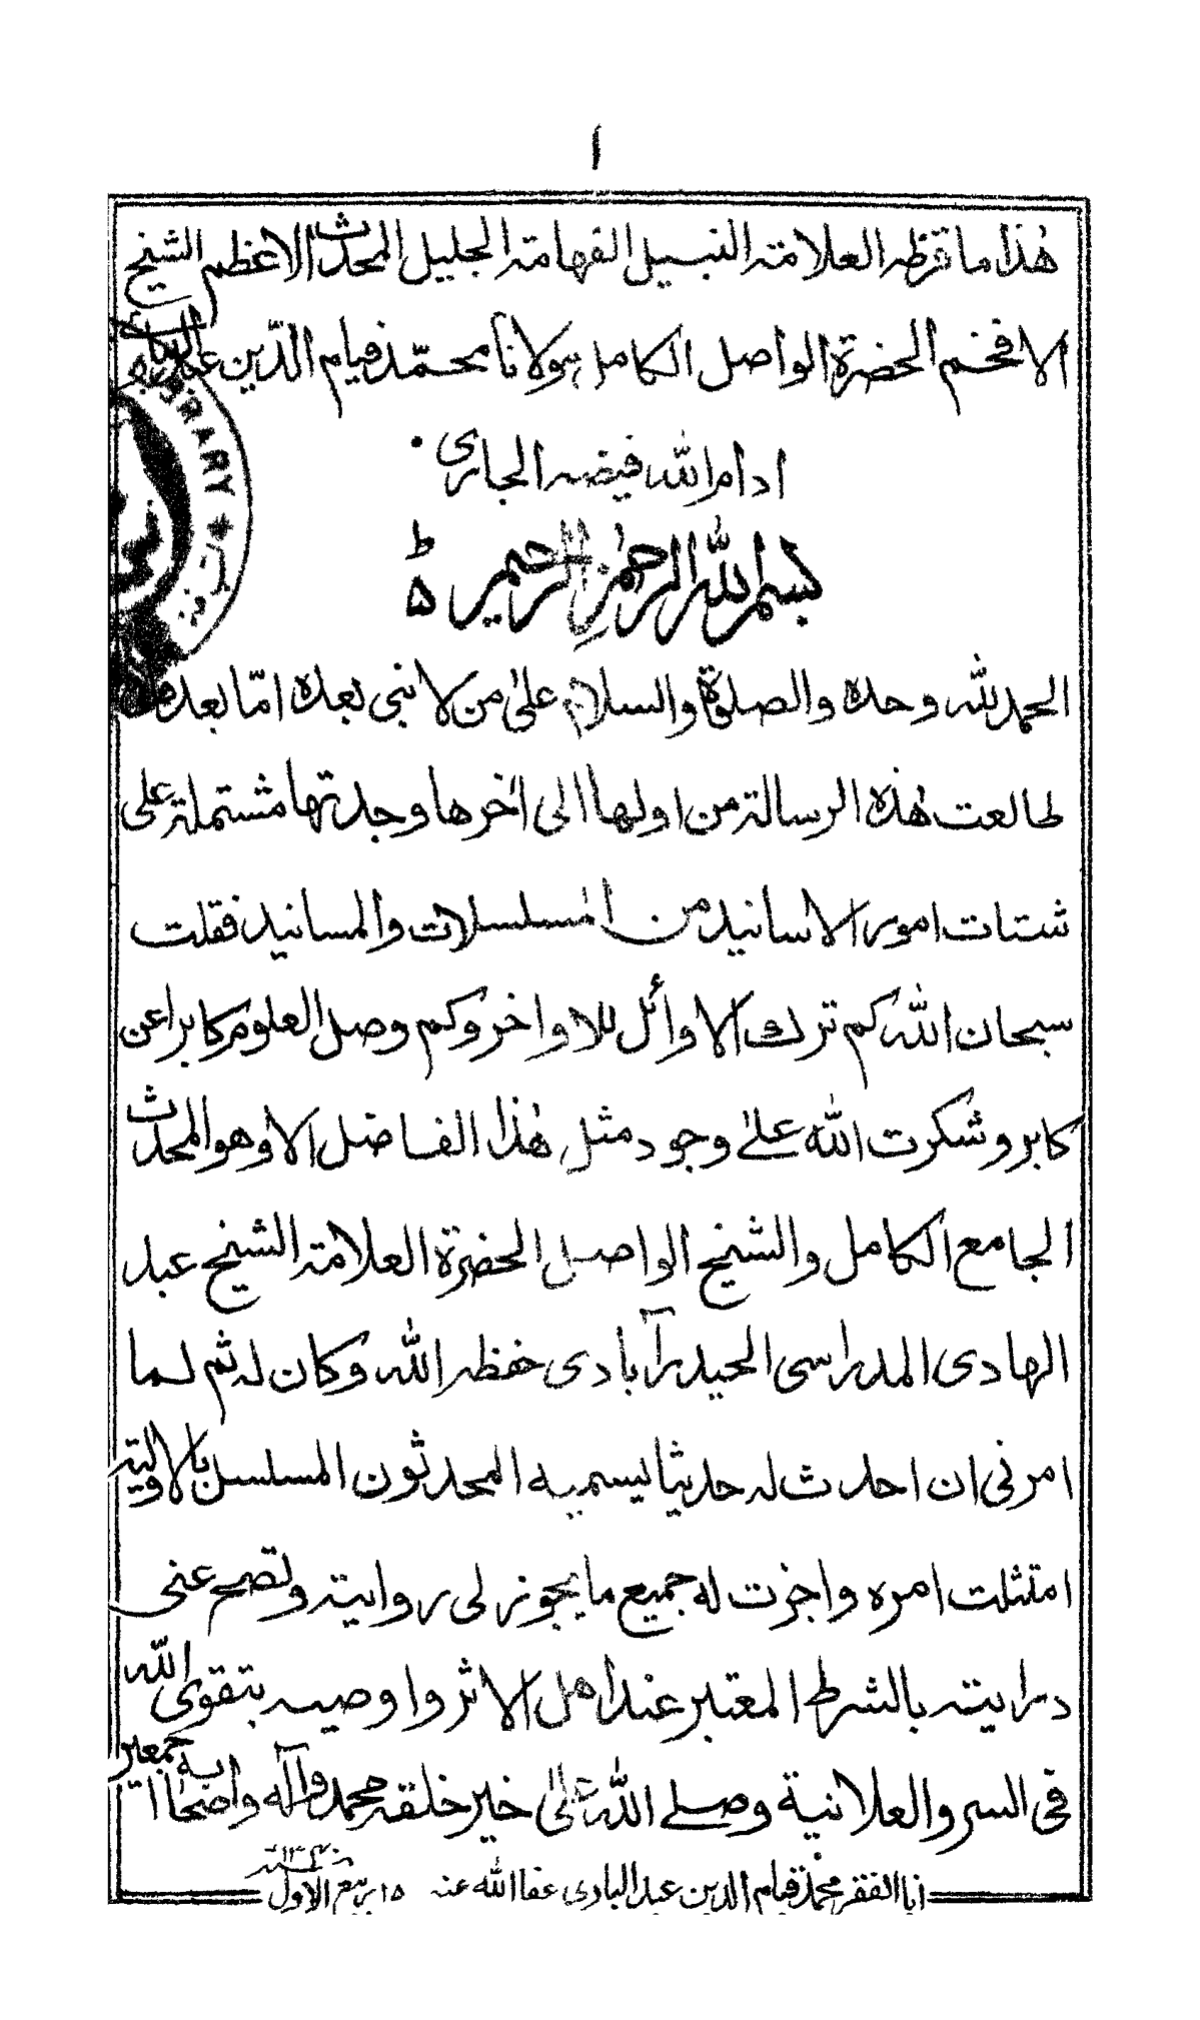 ا
هٰذا ما قرظه العلامة النبيل الفهامة الجليل المحدث الاعظم الشيخ
الافخم الحضرة الواصل الكامل مولانا محمّد قيام الدّين عبد الباري
ادام الله فيضه الجاري
بسم الله الرحمٰن الرحيم ط ۵
الحمد لله وحده والصلوٰة والسلام علىٰ من لا نبي بعده امّا بعد
طالعت هٰذه الرسالة من اولها الى اٰخرها وجدتها مشتملة على
شتات امور الاسانيد من المسلسلات والمسانيد فقلت
سبحان الله كم ترك الاوائل للاواخر وكم وصل العلوم كابرا عن
كابر وشكرت الله علىٰ وجود مثل هٰذا الفاضل الا وهو المحدث
الجامع الكامل والشيخ الواصل الحضرة العلامة الشيخ عبد
الهادي المدراسي الحيدرآبادي حفظه الله وكان له ثم لما
امرني ان احدث له حديثا يسميه المحدثون المسلسل بالاولية
امتثلت امره واجزت له جميع ما يجوز لي روايته وتصح عني
درايته بالشرط المعتبر عند اهل الاثر واوصيه بتقوى الله
في السر والعلانية وصلے الله علىٰ خير خلقه محمد وآله واصحابه اجمعين
انا الفقر محمد قيام الدين عبد الباري عفا الله عنه ١٥ ربيع الاول
LIBRARY